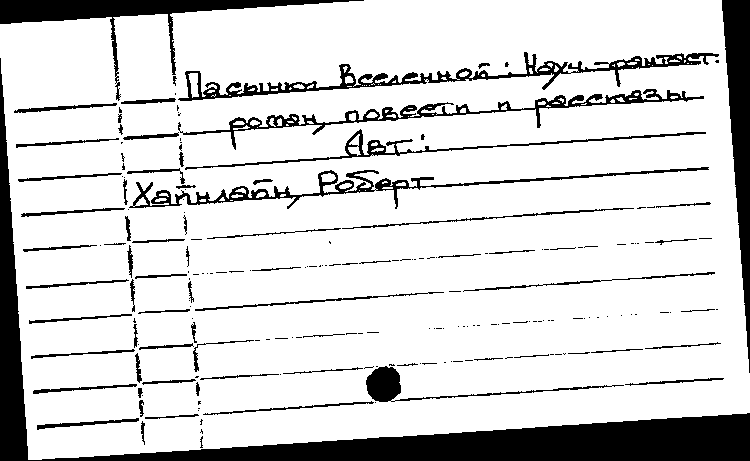 Пасынки Вселенной : Науч.-фантаст.
роман, повести и рассказы
Авт.:
Хайнлайн, Роберт